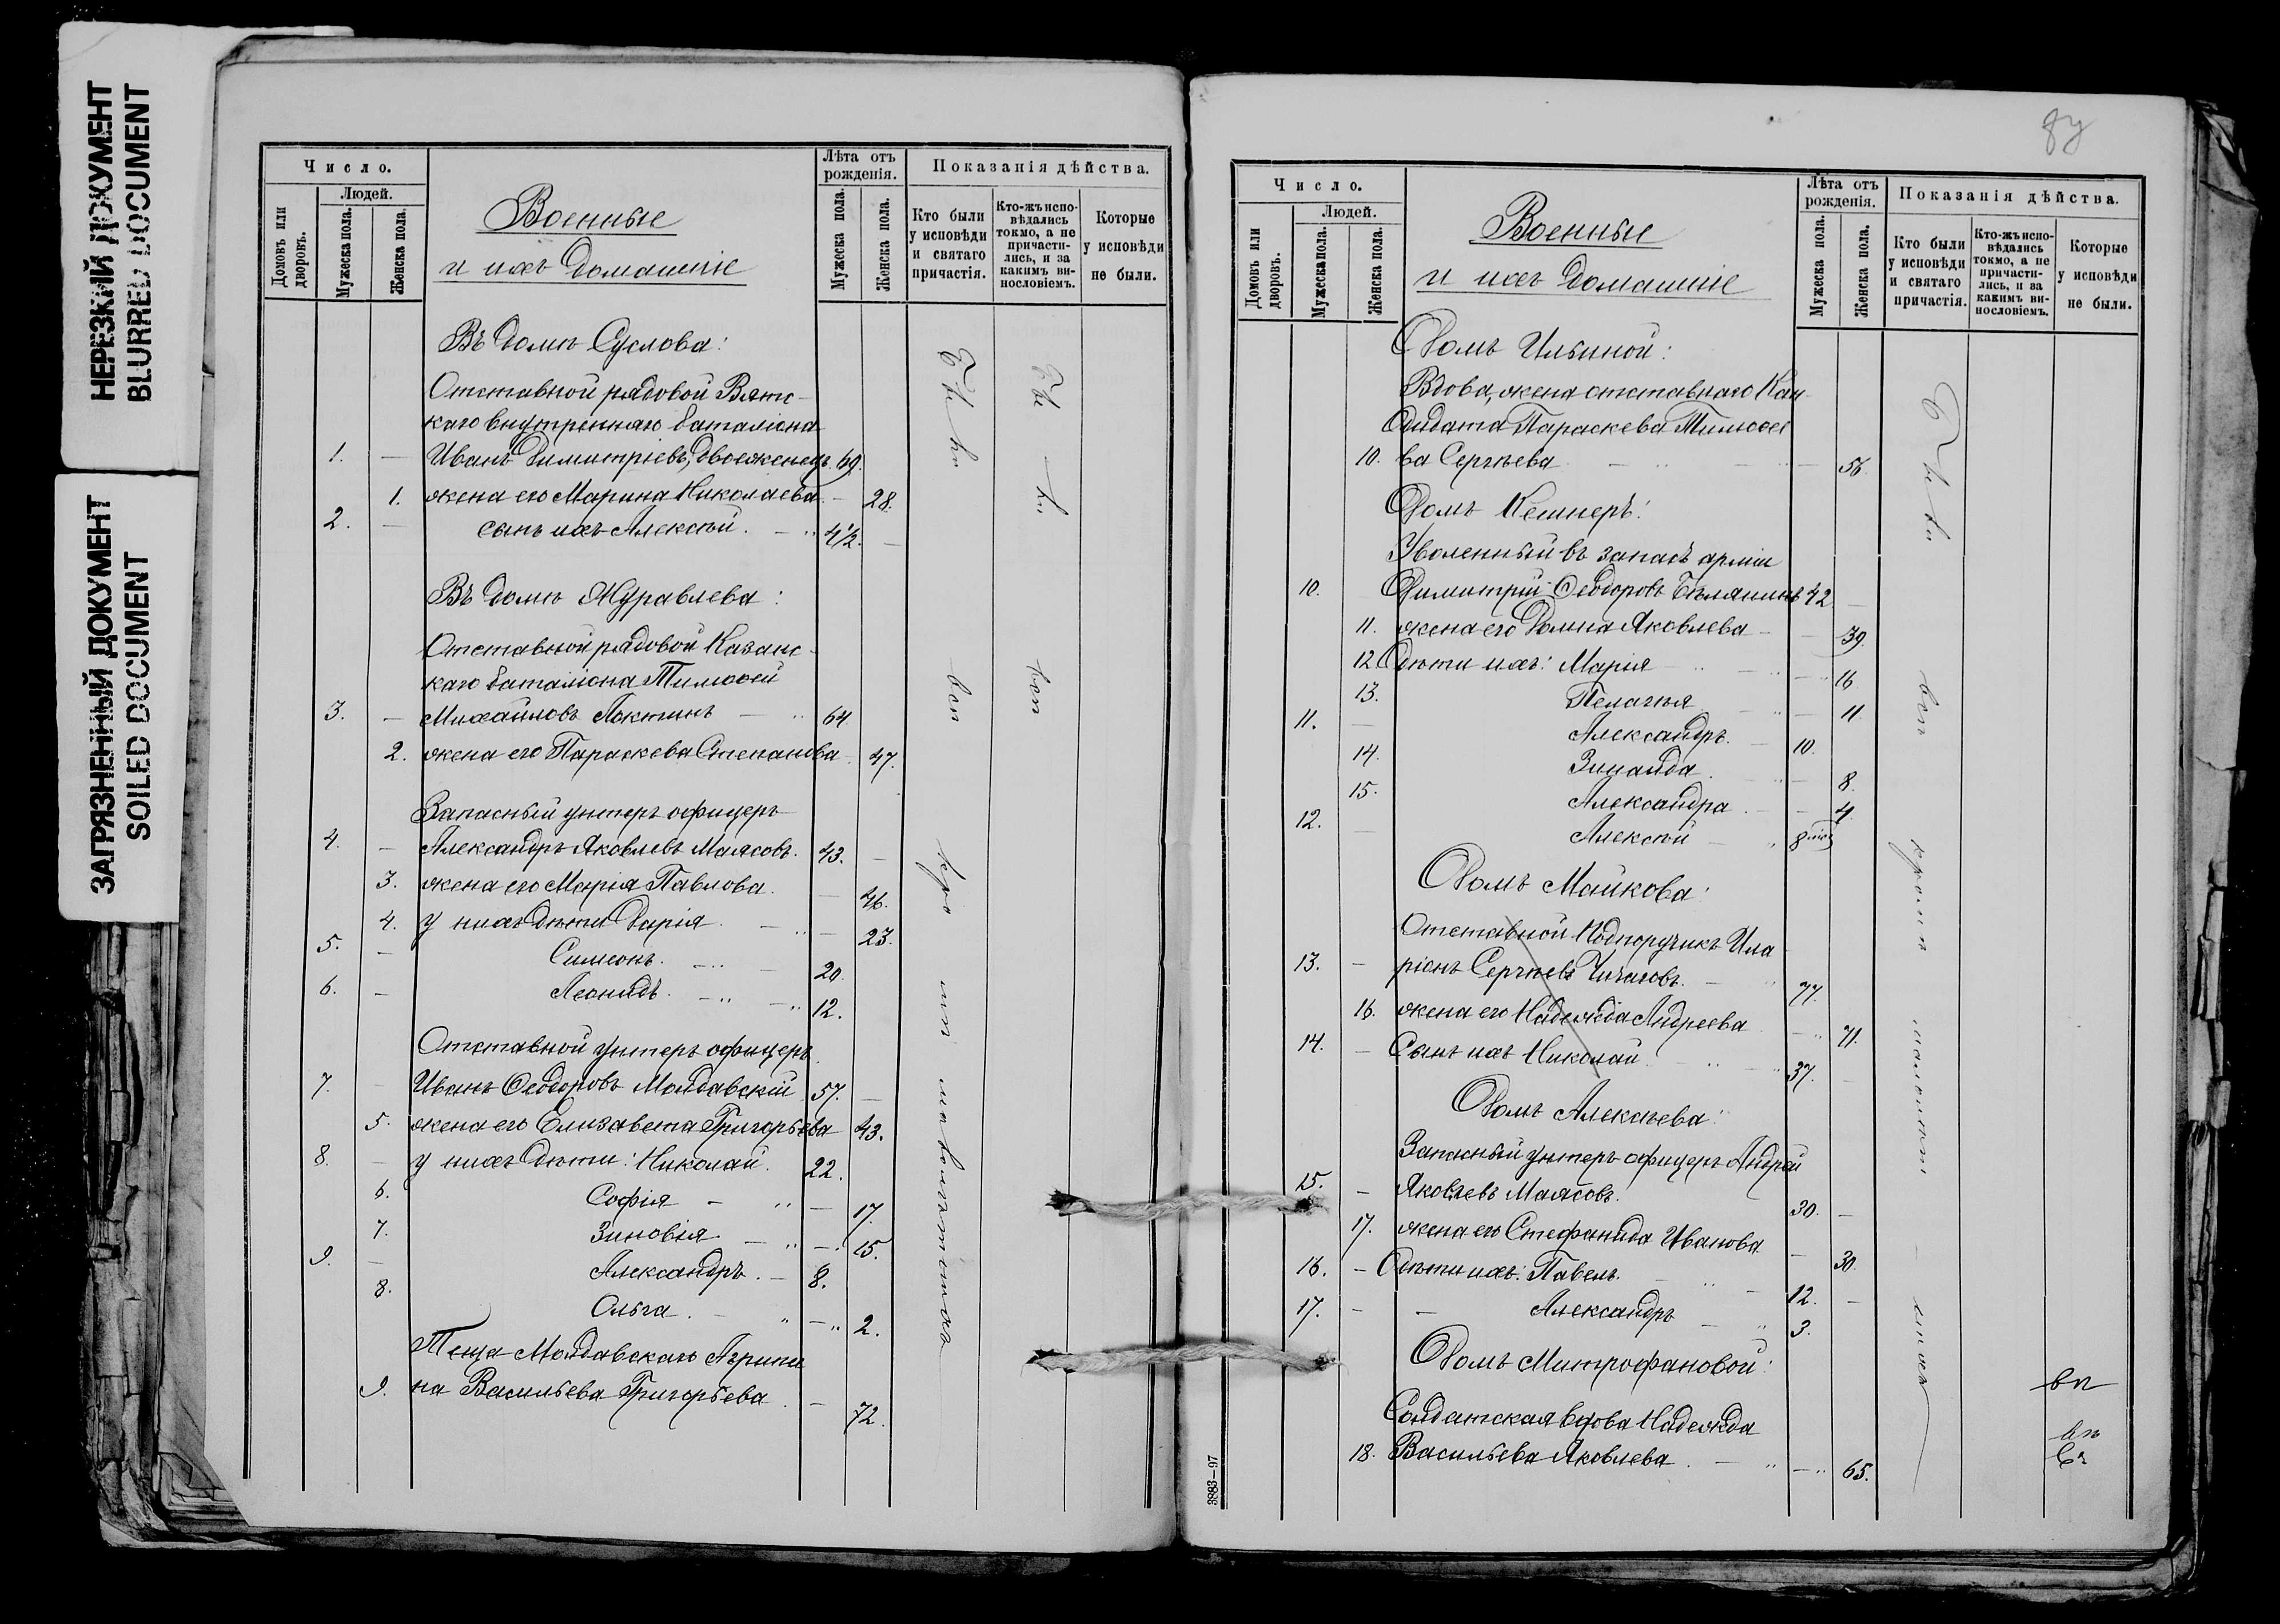 НЕРЕЗКИЙ ДОКУМЕНТ
BLURRED DOCUMENT
ЗАГРЯЗНЕННЫЙ ДОКУМЕНТ
SOILED DOCUMENT
Число.
Людей.
Домовъ или дворовъ.
Мужеска пола.
Женска пола.
Военные
и ихъ домашніе
Лѣта отъ рожденія.
Мужеска пола.
Женска пола.
Показанія дѣйства.
Кто были у исповѣди и святаго причастія.
Кто-жъ исповѣдались токмо, а не причастились, и за какимъ винословіемъ.
Которые у исповѣди не были.
Въ домѣ Суслова:
Отставной рядовой Вятс-
каго внутренняго баталіона
1. — Иванъ Димитріевъ, двоеженецъ. 69.
1. жена его Марина Николаева. — 28.
2. — сынъ ихъ Алексѣй. — 4½. —
Въ домѣ Журавлева:
Отставной рядовой Казанс-
каго баталіона Тимоѳей
3. — Михайловъ Локтинъ — 64
2. жена его Параскева Степанова 47.
Запасный унтеръ офицеръ
4. — Александръ Яковлевъ Маясовъ. 43. —
3. жена его Марія Павлова. — 46.
4. у нихъ дѣти Дарія. — 23.
5. — Симеонъ. — 20.
6. — Леонидъ. — 12.
Отставной унтеръ офицеръ
7. — Иванъ Ѳеодоровъ Молдавскій 57. —
5. жена его Елизавета Григорьева 43.
8. — у нихъ дѣти: Николай. 22.
6. Софія — 17.
7. Зиновія — 15.
9. — Александръ. — 8.
8. Ольга. — 2.
Теща Молдавскаго Агрипи
9. на Васильева Григорьева — 72.
87
Число.
Людей.
Домовъ или дворовъ.
Мужеска пола.
Женска пола.
Военные
и ихъ домашніе
Лѣта отъ рожденія.
Мужеска пола.
Женска пола.
Показанія дѣйства.
Кто были у исповѣди и святаго причастія.
Кто-жъ исповѣдались токмо, а не причастились, и за какимъ винословіемъ.
Которые у исповѣди не были.
Домъ Ильиной:
Вдова, жена отставнаго
Солдата Параскева Тимоѳее
10. ва Сергѣева — 56.
Домъ
Уволенный въ запасъ арміи
10. Димитрій Ѳеодоровъ Бѣлянинъ 42 —
11. жена его Домна Яковлева — 39.
12. Дѣти ихъ: Марія — 16
13. Пелагія — 11.
11. — Александръ. — 10.
14. Зинаида. — 8.
15. Александра. — 4.
12. — Алексѣй — 8 мѣс
Домъ Майкова:
Отставной Подпоручикъ Ила-
13. — ріонъ Сергѣевъ Чичаговъ. — 77.
16. жена его Надежда Андреева — 71.
14. — Сынъ ихъ Николай — 37. —
Домъ Алексѣева:
Запасный унтеръ офицеръ Андрей
15. — Яковлевъ Маясовъ. 30. —
17. жена его Стефанида Иванова — 30.
16. — Дѣти ихъ: Павелъ. — 12. —
17. — — Александръ — 3.
Домъ Митрофановой:
Солдатская вдова Надежда
18. Васильева Яковлева. — 65.
3883—97